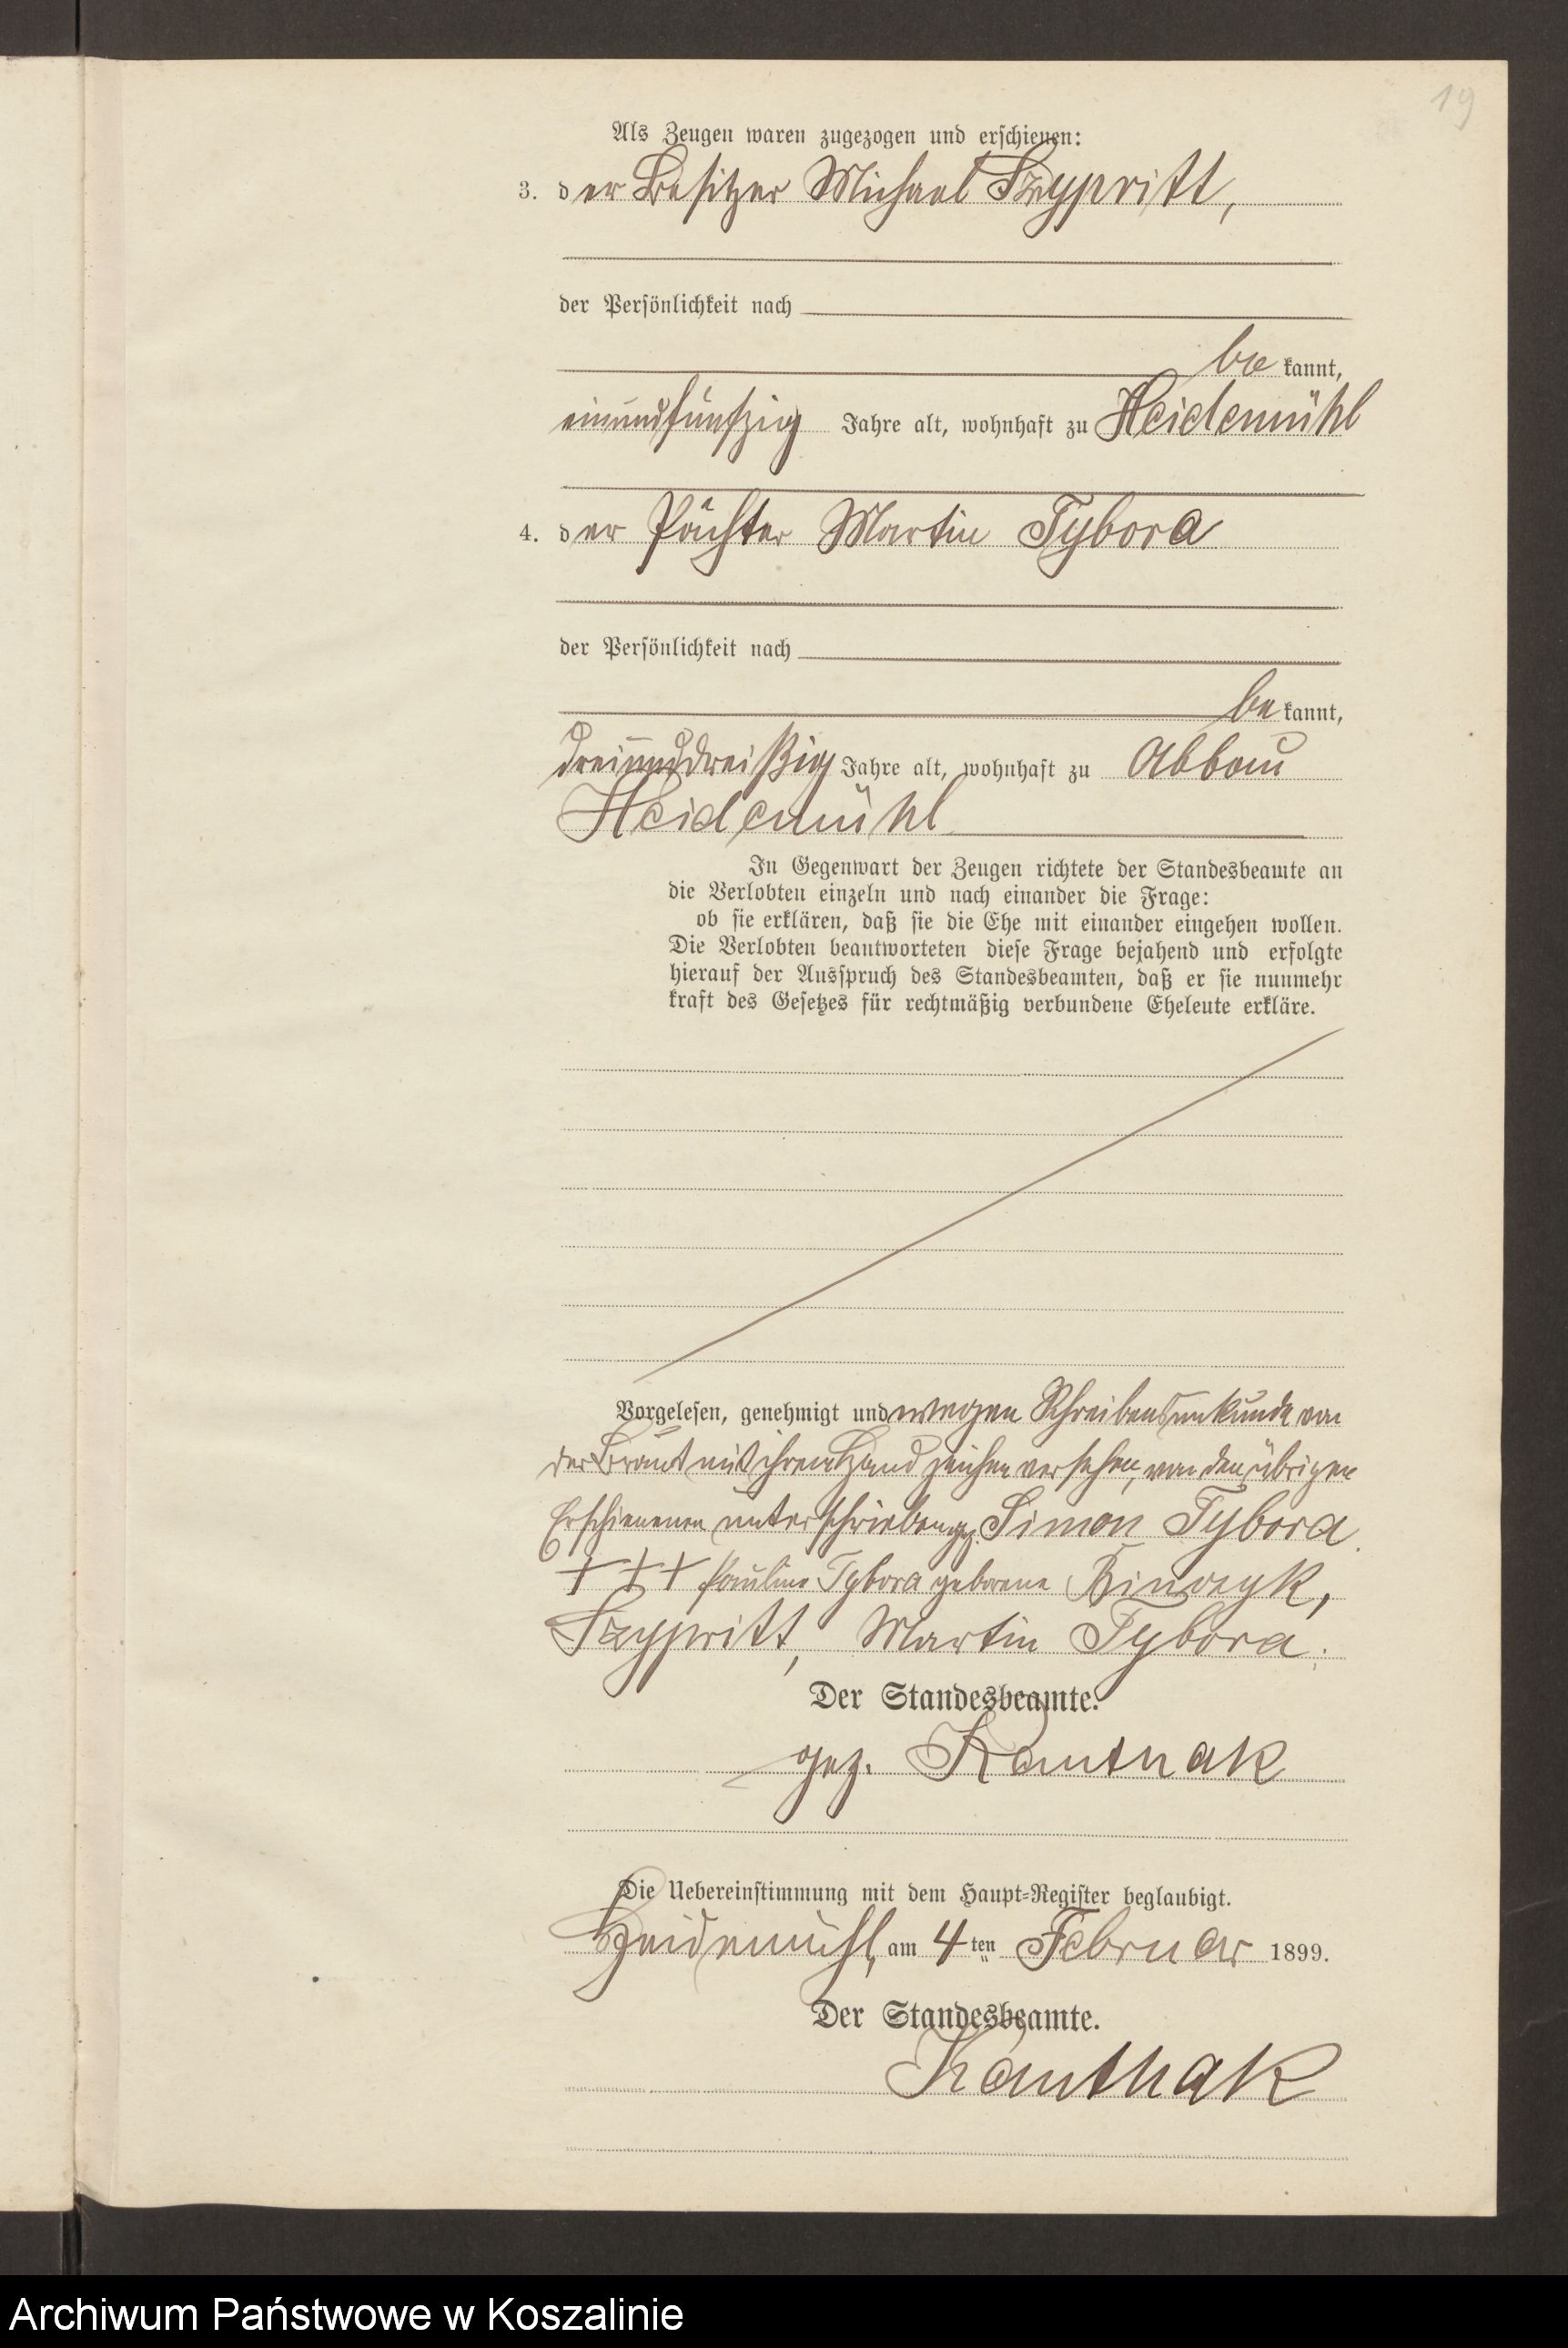 19
Als Zeugen waren zugezogen und erschienen:
3. der Besitzer Michael Szypritt,
der Persönlichkeit nach
be kannt,
einundfünfzig Jahre alt, wohnhaft zu Heidemühl
4. der Pächter Martin Tybora
der Persönlichkeit nach
be kannt,
dreiunddreißig Jahre alt, wohnhaft zu Abbau
Heidemühl
In Gegenwart der Zeugen richtete der Standesbeamte an
die Verlobten einzeln und nach einander die Frage:
ob sie erklären, daß sie die Ehe mit einander eingehen wollen.
Die Verlobten beantworteten diese Frage bejahend und erfolgte
hierauf der Ausspruch des Standesbeamten, daß er sie nunmehr
kraft des Gesetzes für rechtmäßig verbundene Eheleute erkläre.
Vorgelesen, genehmigt und wegen Schreibensunkunde von
der Braut mit ihrem Handzeichen versehen, von den übrigen
Erschienenen unterschrieben gez. Simon Tybora.
+++ Pauline Tybora geborene Binczyk,
Szypritt, Martin Tybora.
Der Standesbeamte.
gez. Kanthak
Die Uebereinstimmung mit dem Haupt-Register beglaubigt.
Heidemühl, am 4 ten Februar 1899.
Der Standesbeamte.
Kanthak
Archiwum Państwowe w Koszalinie